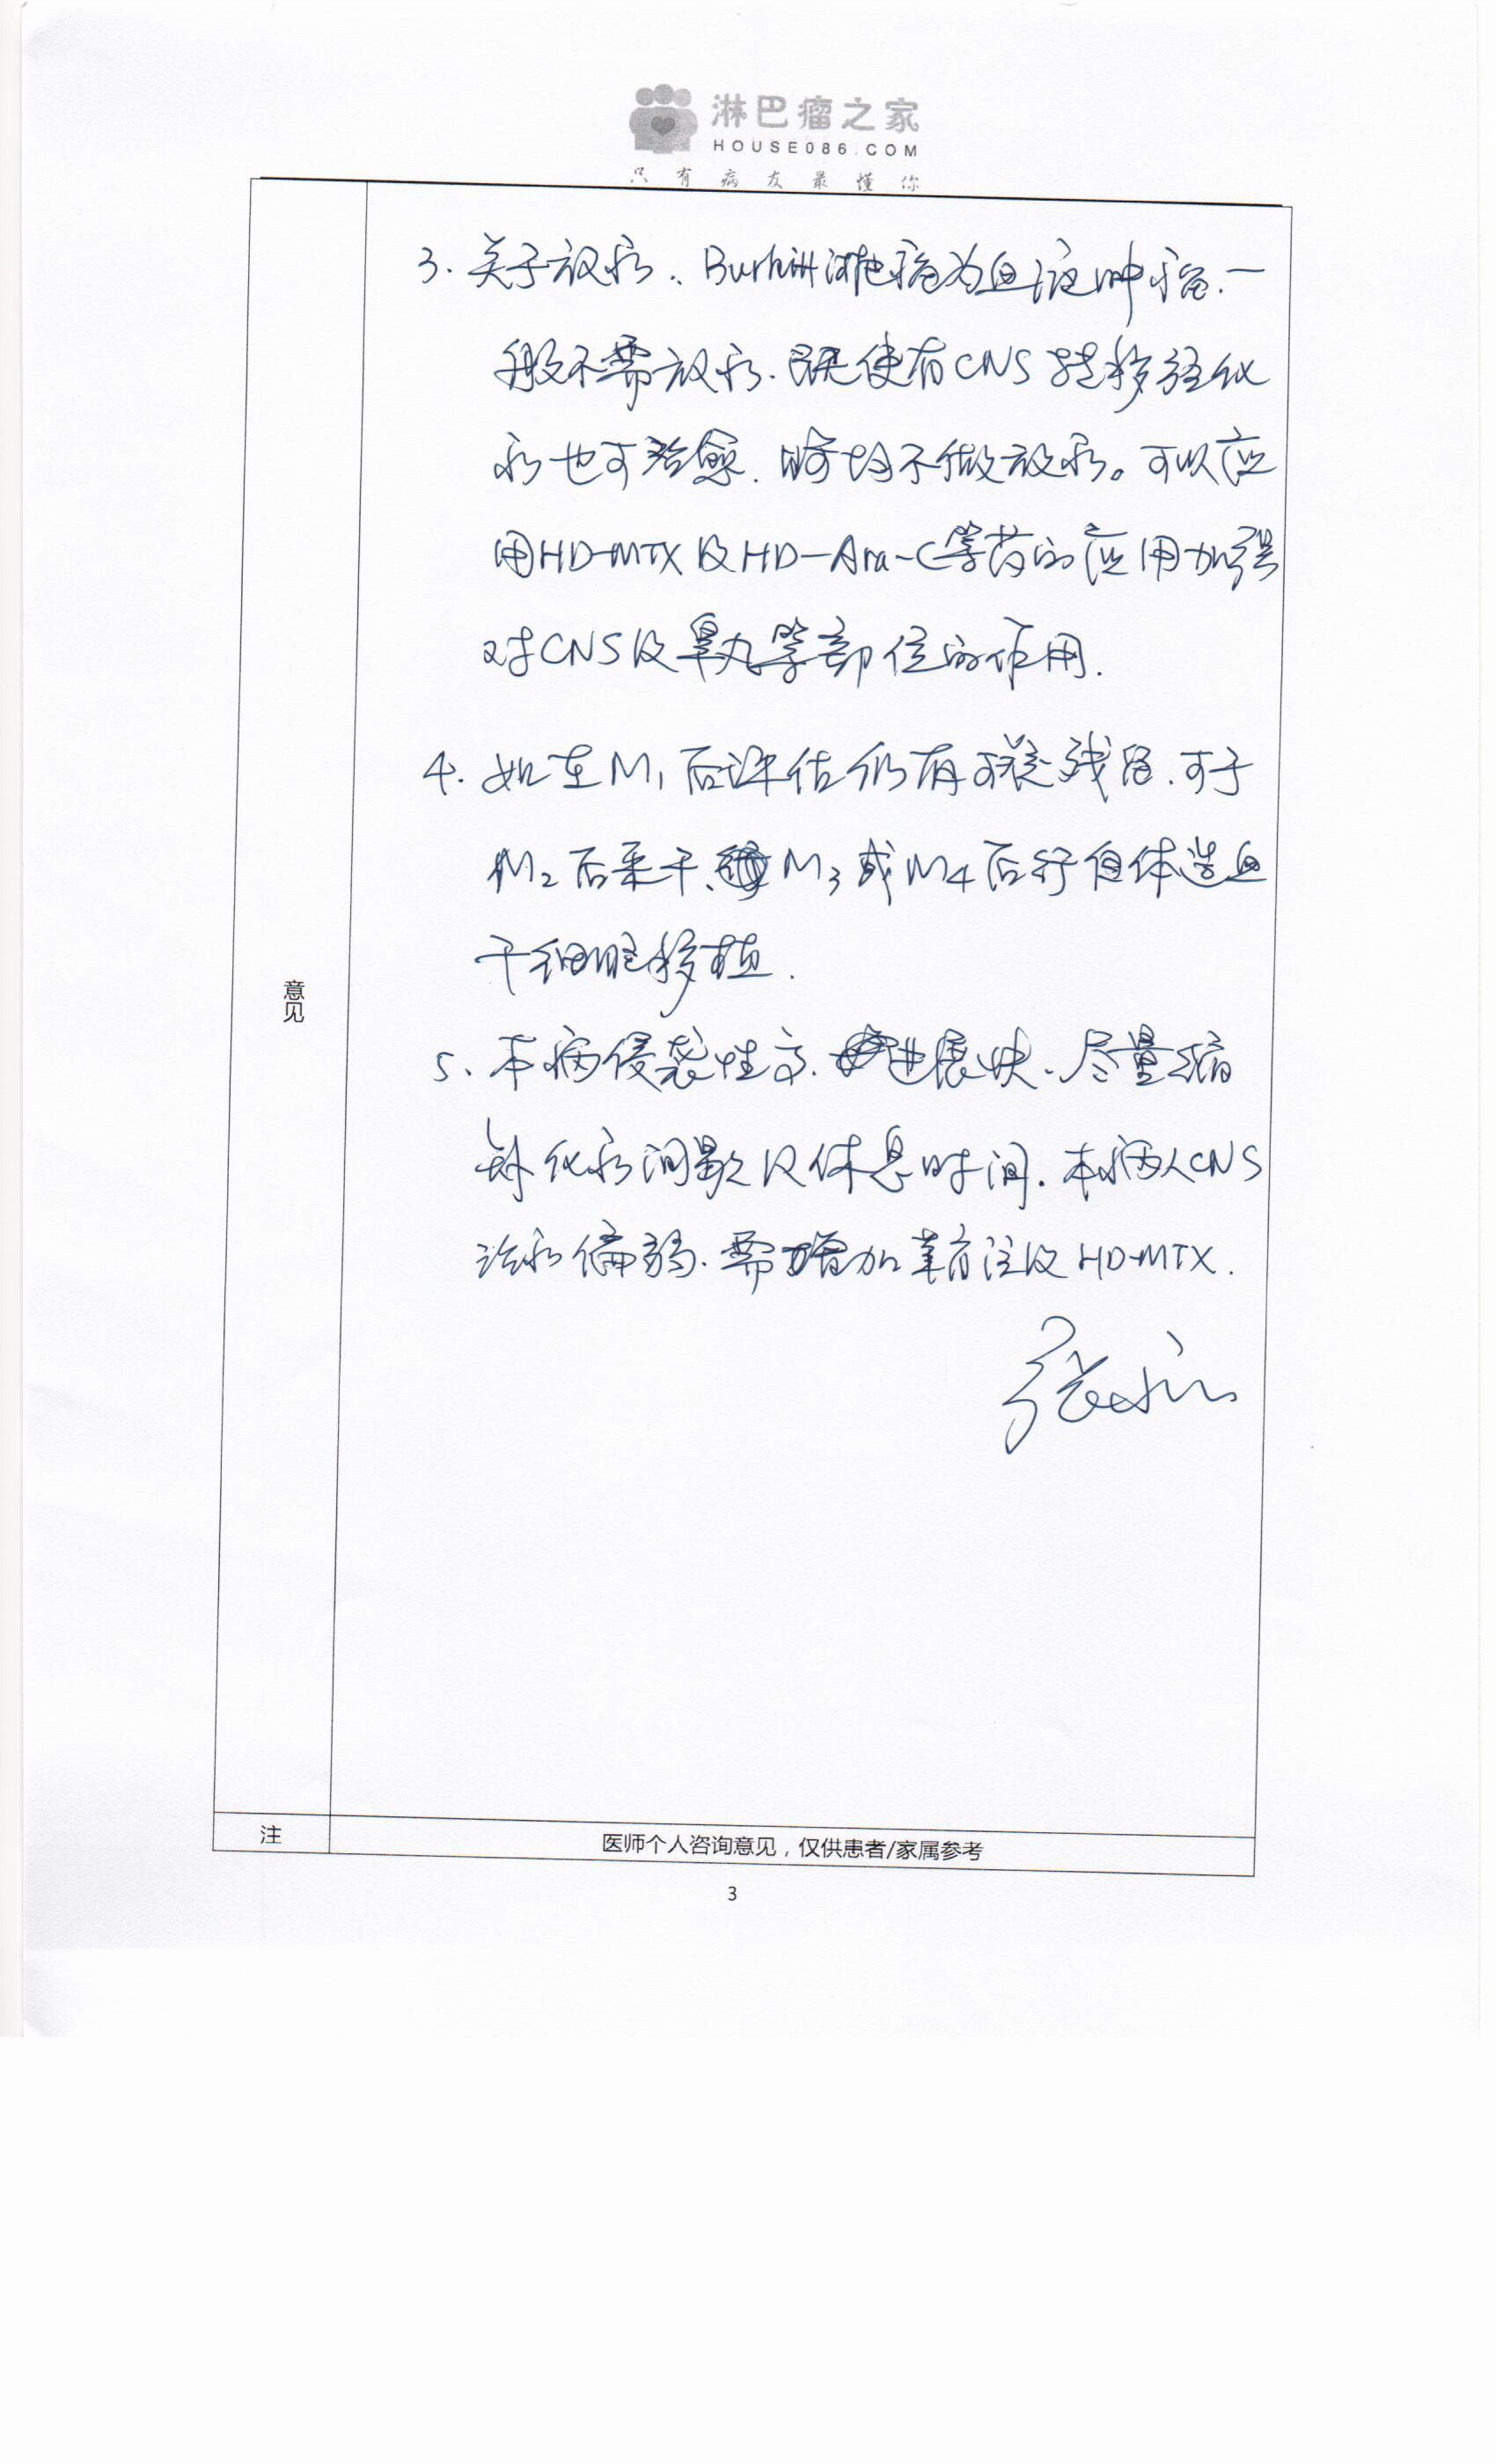 淋巴瘤之家
HOUSE086.COM
只有病友最懂你
3. 关于放疗、Burkitt淋巴瘤为血液肿瘤.一
般不需放疗.既使有CNS转移经化
疗也可治愈. 故均不做放疗。可以应
用HD-MTX及HD-Ara-C等药的应用加强
对CNS及睾丸等部位的作用.
4. 如在M1后评估仍有可疑残留.可于
M2后采干、M3或M4后行自体造血
干细胞移植.
意见
5、本病侵袭性高.进展快、尽量缩
短化疗间歇及休息时间.本病人CNS
治疗偏弱.需增加鞘注及HD-MTX.
注
医师个人咨询意见，仅供患者/家属参考
3